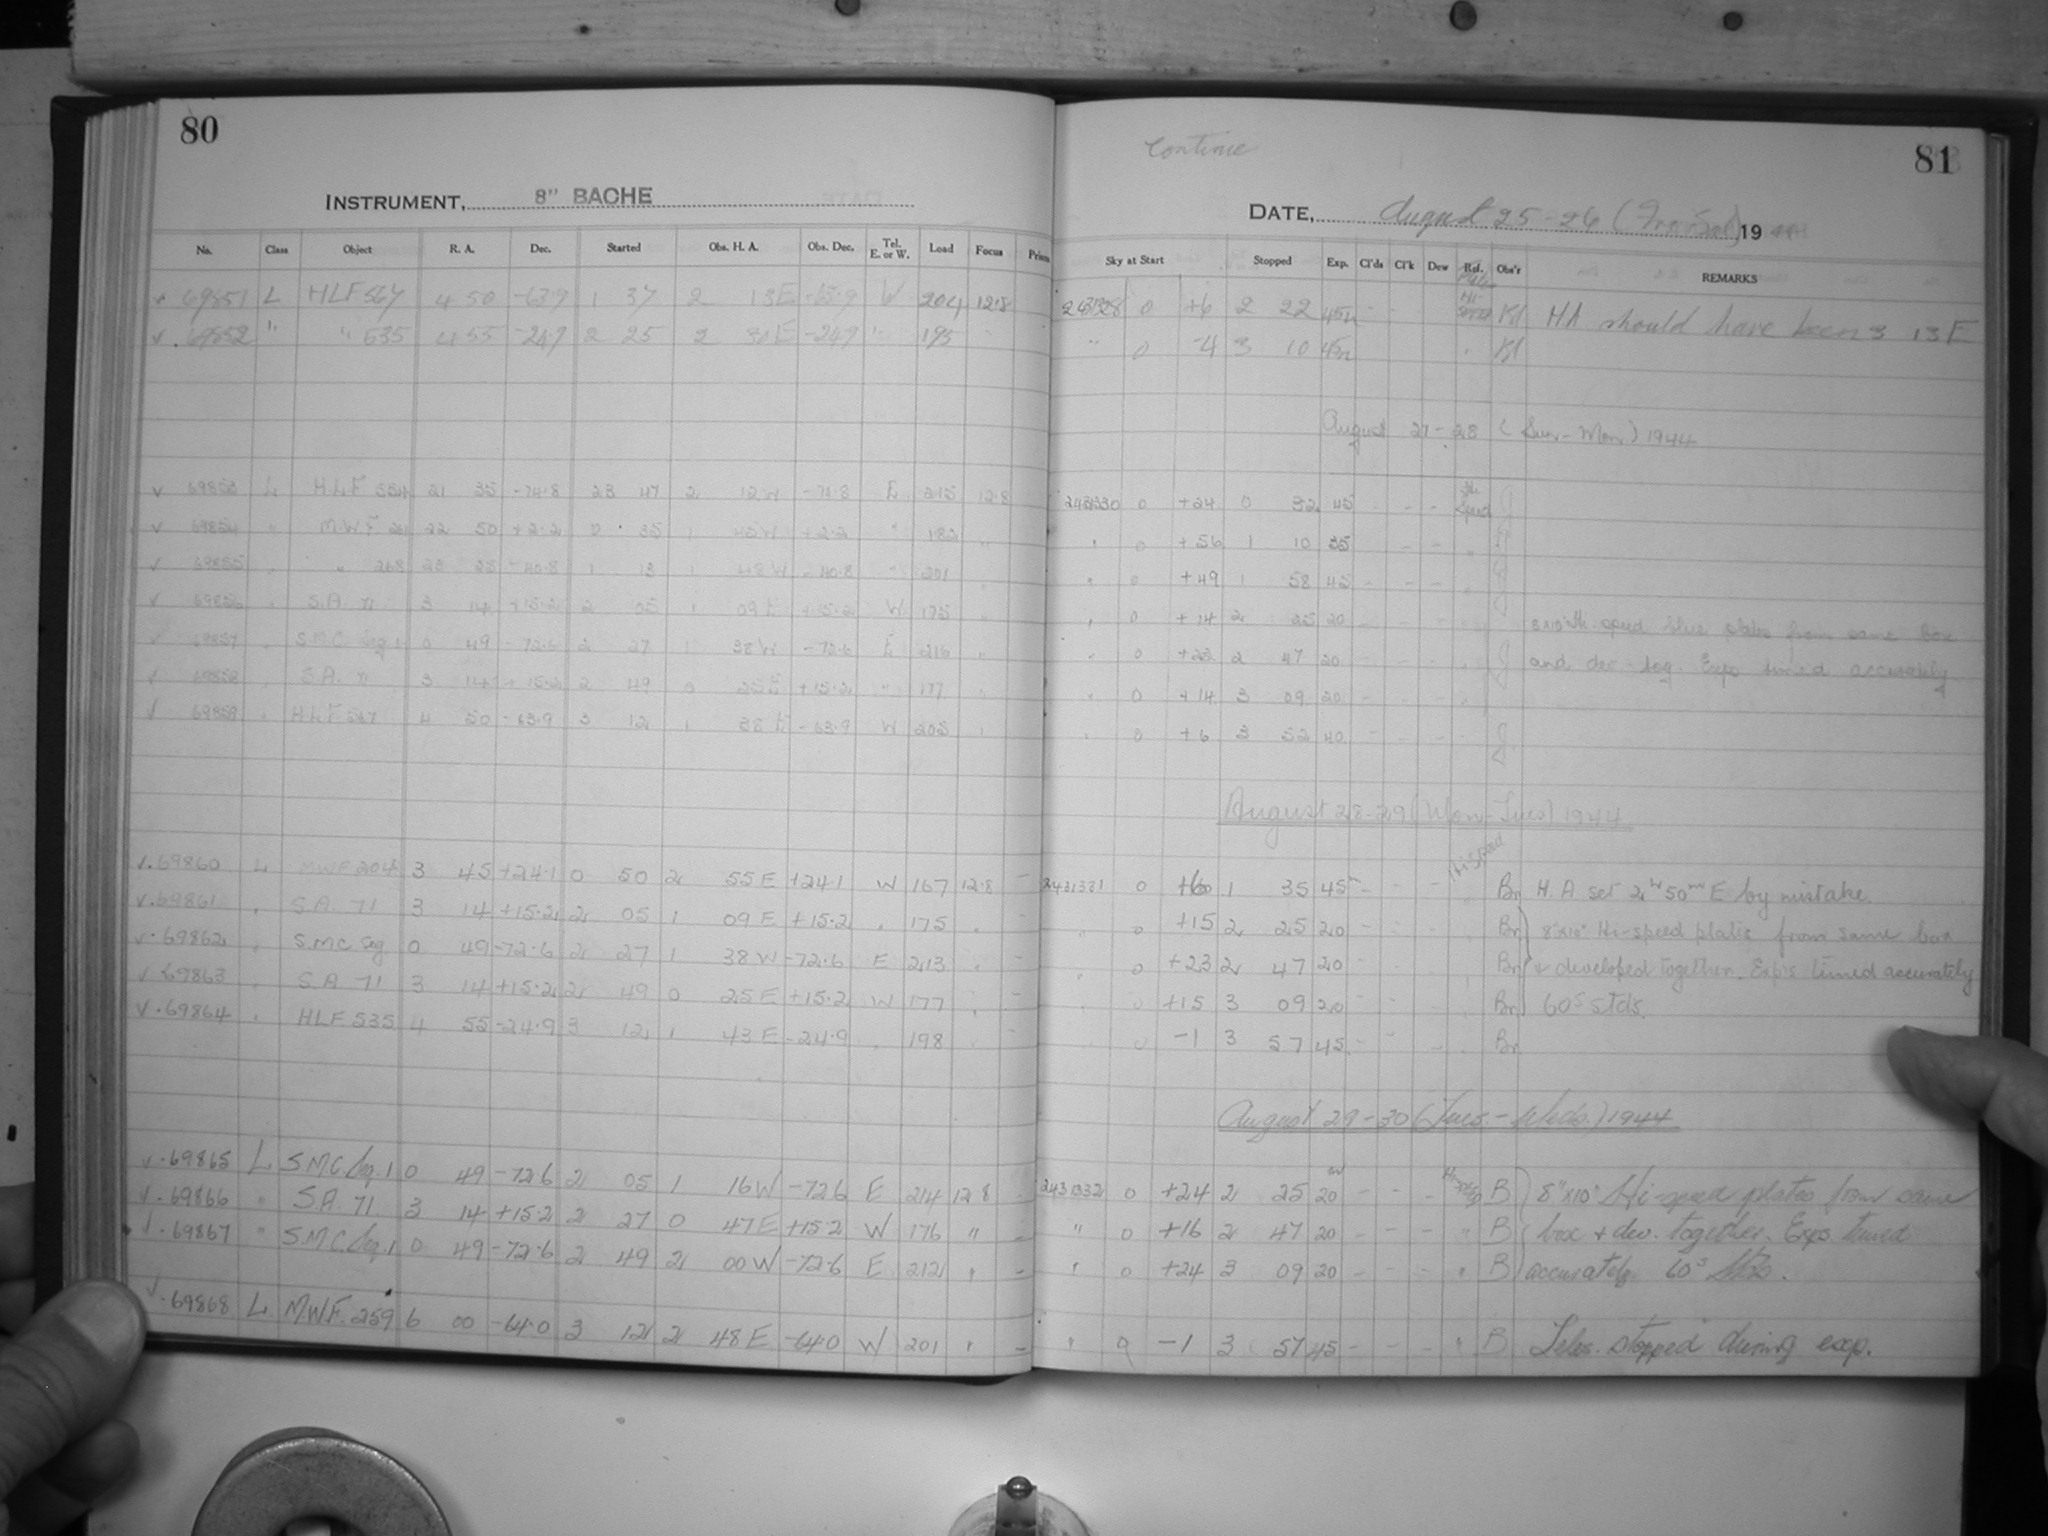 80
INSTRUMENT, 8" BACHE
No. Class Object R. A. Dec. Started Obs. H. A. Obs. Dec. Tel. E. or W. Load Focus Prism
v 69851 L HLF 567 4 50 -63.9 1 37 2 13E -63.9 W 204 12.8
v. 69852 " " 535 4 55 -24.9 2 25 2 30E -24.9 " 195
v 69853 L H.L.F 554 21 35 -74.8 23 47 2 12W -74.8 E 215 12.8
v 69854 " M.W.F 261 22 50 +2.2 0 35 1 45W +2.2 " 182
v 69855 " " 268 23 25 -40.8 1 13 1 48W -40.8 " 201
v 69856 S.A. 71 3 14 +15.2 2 05 1 09E +15.2 W 175
v 69857 S.M.C. Seq 1 0 49 -72.6 2 27 1 38W -72.6 E 216
v 69858 S.A. 71 3 14 +15.2 2 49 0 25E +15.2 " 177
v 69859 HLF 567 4 50 -63.9 3 12 1 38E -63.9 W 205
v. 69860 L MWF 204 3 45 +24.1 0 50 2 55E +24.1 W 167 12.8 -
v. 69861 S.A. 71 3 14 +15.2 2 05 1 09E +15.2 " 175 -
v. 69862 S.M.C. Seq 0 49 -72.6 2 27 1 38W -72.6 E 213 -
v. 69863 S.A. 71 3 14 +15.2 2 49 0 25E +15.2 W 177 -
v. 69864 HLF 535 4 55 -24.9 3 12 1 43E -24.9 " 198
v. 69865 L S.M.C. Seq. 1 0 49 -72.6 2 05 1 16W -72.6 E 214 12.8
v. 69866 " S.A. 71. 3 14 +15.2 2 27 0 47E +15.2 W 176 " -
v. 69867 " S.M.C. Seq. 1 0 49 -72.6 2 49 2 00W -72.6 E 212 " -
v. 69868 L M.W.F. 259 6 00 -64.0 3 12 2 48E -64.0 W 201 " -
Continue
81
DATE, August 25-26 (Fri-Sat) 1944
Sky at Start Stopped Exp. Cl'ds Cl'k Dew Ref. Obs'r REMARKS
2431328 0 +6 2 22 45m - Hi-speed Kl HA should have been 3 13E
" 0 -4 3 10 45m Kl
August 27-28 (Sun-Mon) 1944
2431330 0 +24 0 32 45 - - - Hi Speed J
" 0 +56 1 10 35 - - J
" 0 +49 1 58 45 - - - J
" 0 +14 2 25 20 - - - 8x10 Hi speed blue plates from same box
" 0 +23 2 47 20 - - - J and dev. tog. Exps timed accurately
" 0 +14 3 09 20 - - -
" 0 +6 3 52 40 - - - J
August 28-29 (Mon-Tues) 1944
2431331 0 +6 1 35 45m - - - Hi Speed Br H.A set 2h 50m E by mistake.
" 0 +15 2 25 20 - - - Br 8"x10" Hi-speed plates from same box
" 0 +23 2 47 20 - - - Br & developed together. Exps timed accurately
" 0 +15 3 09 20 - - - Br 60s stds.
" 0 -1 3 57 45 - - - Br
August 29-30 (Tues.-Weds.) 1944
2431332 0 +24 2 25 20m - - - Hi-speed B 8"x10" Hi-speed plates from same
" 0 +16 2 47 20 - - - " B box + dev. together. Exps timed
" 0 +24 3 09 20 - - - " B accurately 60s Stds.
" 0 -1 3 57 45 - - - " B Teles. stopped during exp.